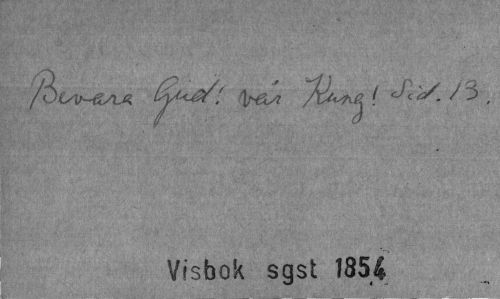 Bevara Gud! vår Kung! Sid. 13.
Visbok sgst 1854